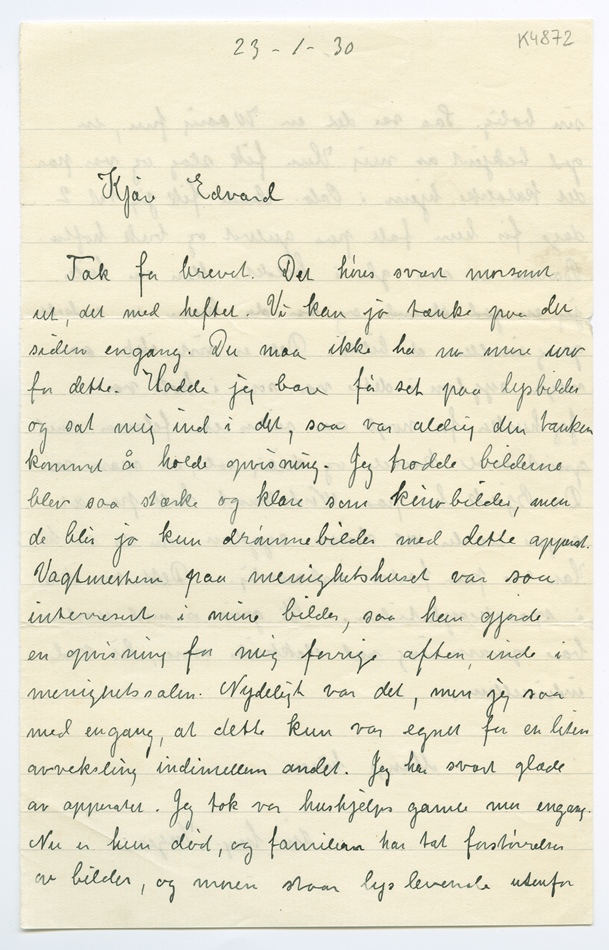 23 - 1 - 30
K4872
Kjære Edvard
Tak for brevet. Det høres svært morsomt
ut, det med heftet. Vi kan jo tænke paa det
siden engang. Du maa ikke ha no mere uro
for dette. Hadde jeg bare få set paa lysbilder
og sat mig ind i det, saa var aldrig den tanken
kommet å holde opvisning. Jeg trodde bilderne
blev saa stærke og klare som kinobilder, men
de blir jo kun drømmebilder med dette apparat.
Vagtmestern paa menighetshuset var saa
interresert i mine bilder, saa han gjorde
en opvisning for mig forrige aften, inde i
menighetssalen. Nydeligt var det, men jeg saa
med engang, at dette kun var egnet for en liten
avveksling indimellem andet. Jeg har svært glæde
av apparatet. Jeg tok vor hushjelps gamle mor engang.
Nu er hun død, og familien har tat forstørrelse
av bilder, og moren staar lys levende utenfor